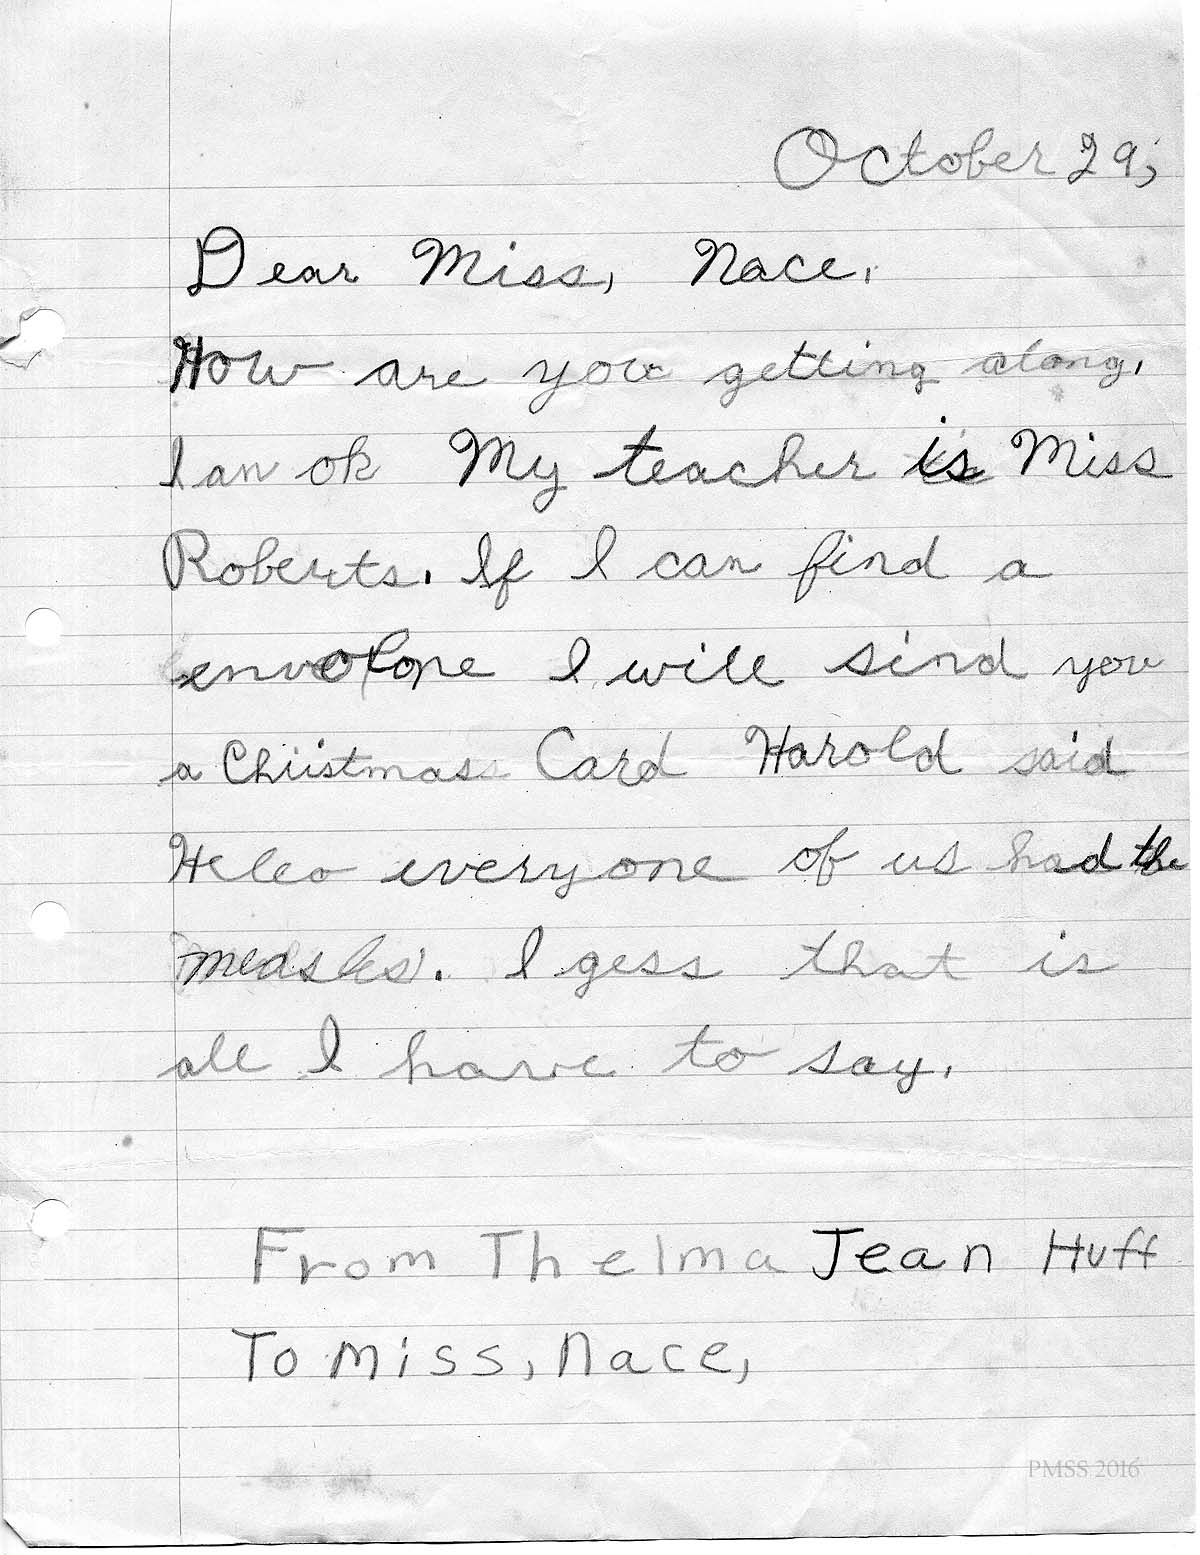 October 29,
Dear Miss, Nace.
How are you getting along.
I an ok My teacher is Miss
Roberts. If I can find a
envolope I will sind you
a Chiistmass Card Harold said
Hello everyone of us had the
measles. I gess that is
all I have to say.
From Thelma Jean Huff
To Miss, Nace,
PMSS 2016